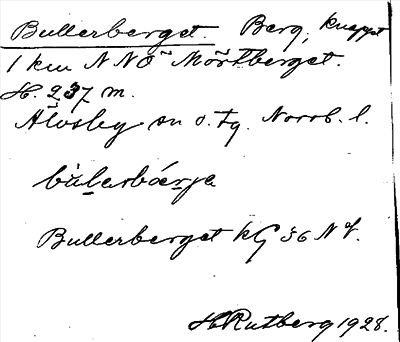 Bullerberget. Berg, knappt
1 km NNO Mörtberget.
H. 237 m.
Älvsby sn o. tg. Norrb. l.
bùlerbærje
Bullerberget kG 36 NV.
H Rutberg 1928.